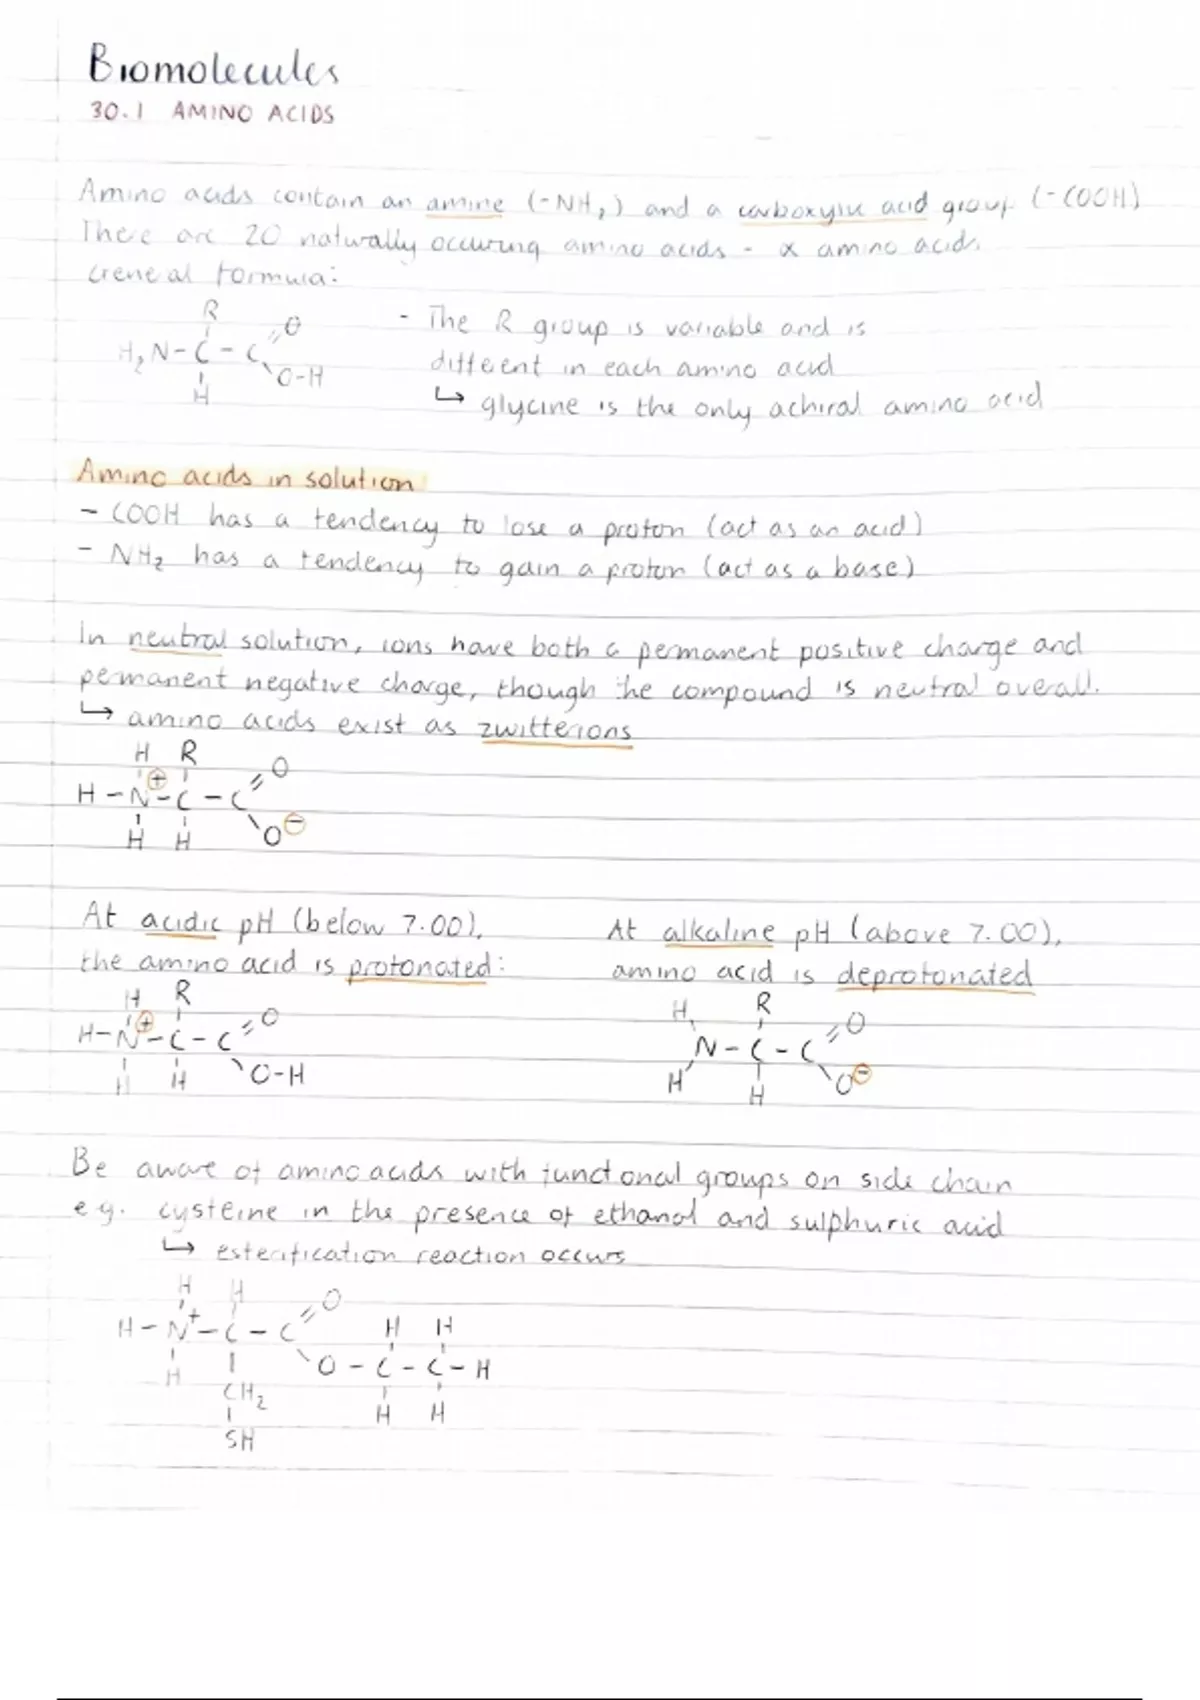 Biomolecules
30.1 AMINO ACIDS
Amino acids contain an amine (-NH2) and a carboxylic acid group (-COOH)
There are 20 naturally occuring amino acids - α amino acids.
General formula:
R
O
H2N-C-C
O-H
H
- The R group is variable and is
different in each amino acid
↳ glycine is the only achiral amino acid
Amino acids in solution
- COOH has a tendency to lose a proton (act as an acid)
- NH2 has a tendency to gain a proton (act as a base)
In neutral solution, ions have both a permanent positive charge and
permanent negative charge, though the compound is neutral overall.
↳ amino acids exist as zwitterions
H R
+ O
H-N-C-C
O-
H H
At acidic pH (below 7.00),
the amino acid is protonated:
H R
+ O
H-N-C-C
H H O-H
At alkaline pH (above 7.00),
amino acid is deprotonated
H R
O
N-C-C
H O-
H
Be aware of amino acids with functional groups on side chain
e.g. cysteine in the presence of ethanol and sulphuric acid
↳ esterification reaction occurs
H H O
H-N+-C-C H H
H O-C-C-H
CH2 H H
SH